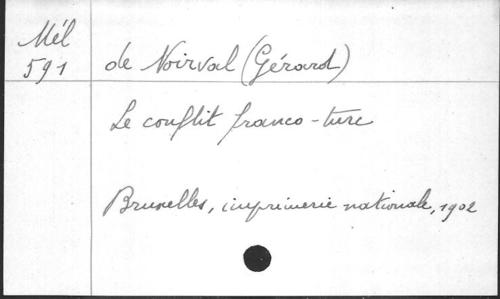 Mél
591
de Noirval (Gérard)
Le conflit franco-turc
Bruxelles, imprimerie nationale, 1902